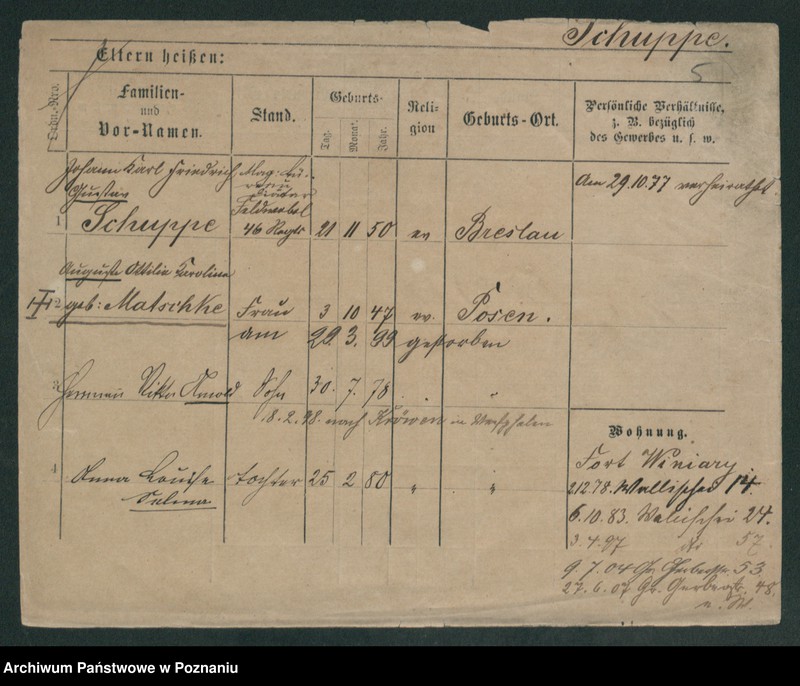 Schuppe.
Eltern heißen:
5
Haus-Nro.
Familien-
und
Vor-Namen.
Stand.
Geburts-
Tag.
Monat.
Jahr.
Reli-
gion
Geburts-Ort.
Persönliche Verhältnisse,
z. B. bezüglich
des Gewerbes u. s. w.
Johann Karl Friedrich
Gustav
1 Schuppe
Feldwebel
46 Regts 21 11 50 ev Breslau
Am 29.10.77 verheirathet.
Auguste Ottilie Karoline
2 geb: Matschke Frau 3 10 47 ev. Posen.
am 29. 3. 99 gestorben
3 Herman Viktor Arnold Sohn 30. 7. 78 "
18. 2. 98 nach in Westphalen
4 Anna Louise Tochter 25 2 80 " "
Selma
Wohnung.
Fort Winiary.
2.12.78. Wallischei 14.
6.10.83. Wallischei 24.
3.4.97 57.
9.7.04 Gr. Gerberstr. 53
27.6.07 Gr. Gerberstr. 48.
Archiwum Państwowe w Poznaniu